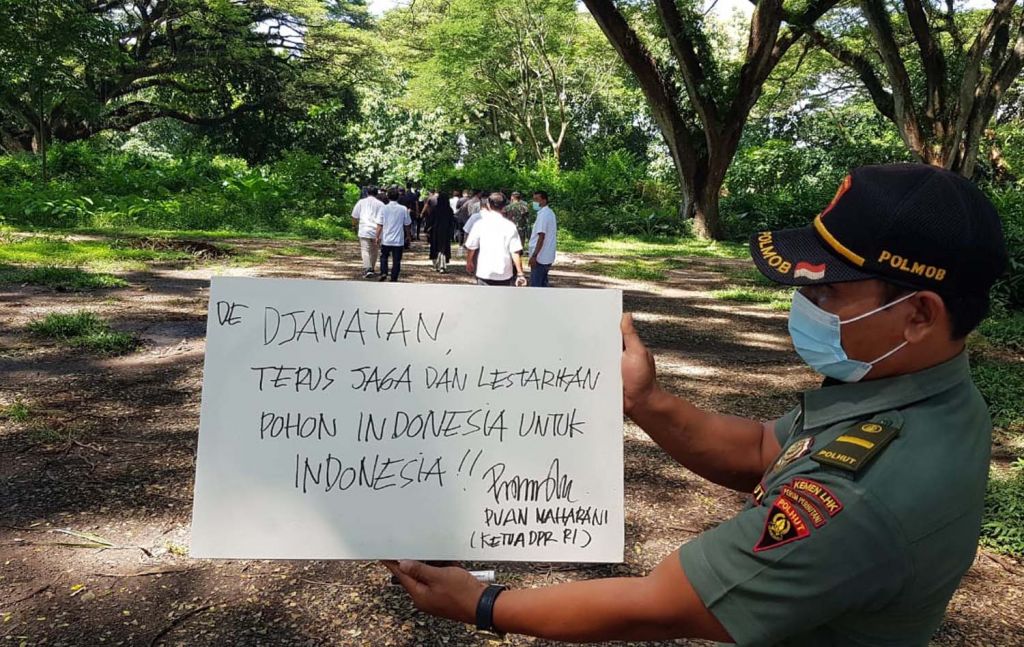 DE DJAWATAN,
TERUS JAGA DAN LESTARIKAN
POHON INDONESIA UNTUK
INDONESIA !!
PUAN MAHARANI
(KETUA DPR RI)
POLMOB
POLMOB
POLHUT
KEMEN LHK
POLHUT